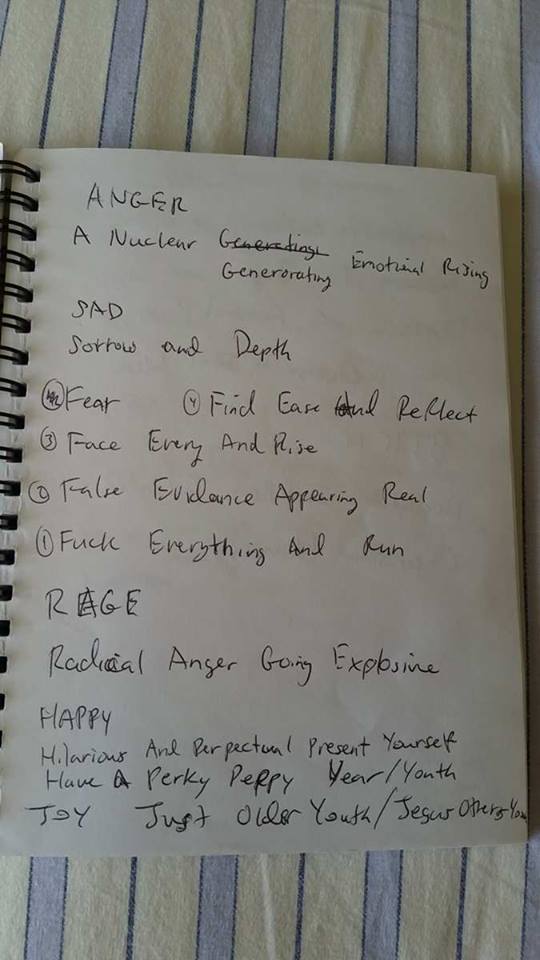 ANGER
A Nuclear Generating Emotional Rising
Generorating
SAD
Sorrow and Depth
Fear ④ Find Ease And Reflect
③ Face Every And Rise
② False Evidance Appearing Real
① Fuck Everything And Run
RAGE
Radical Anger Going Explosive
HAPPY
Hilarious And Perpectual Present Yourself
Have A Perky Peppy Year/Youth
JOY Just Older Youth/Jesus Others You